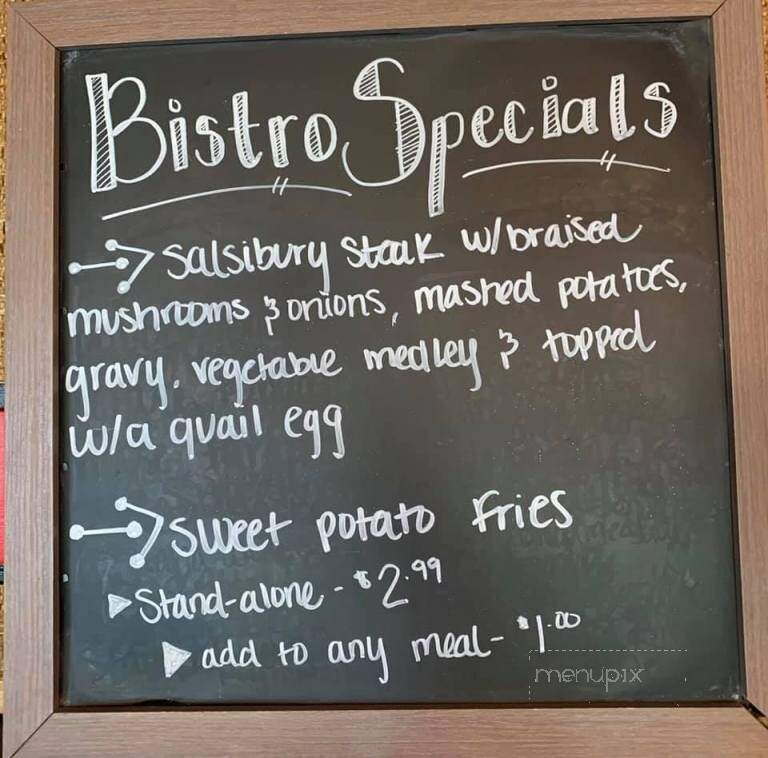 Bistro Specials
salsibury steak w/braised
mushrooms & onions, mashed potatoes,
gravy, vegetable medley & topped
w/a quail egg
sweet potato fries
Stand-alone - $2.99
add to any meal - $1.00
menupix